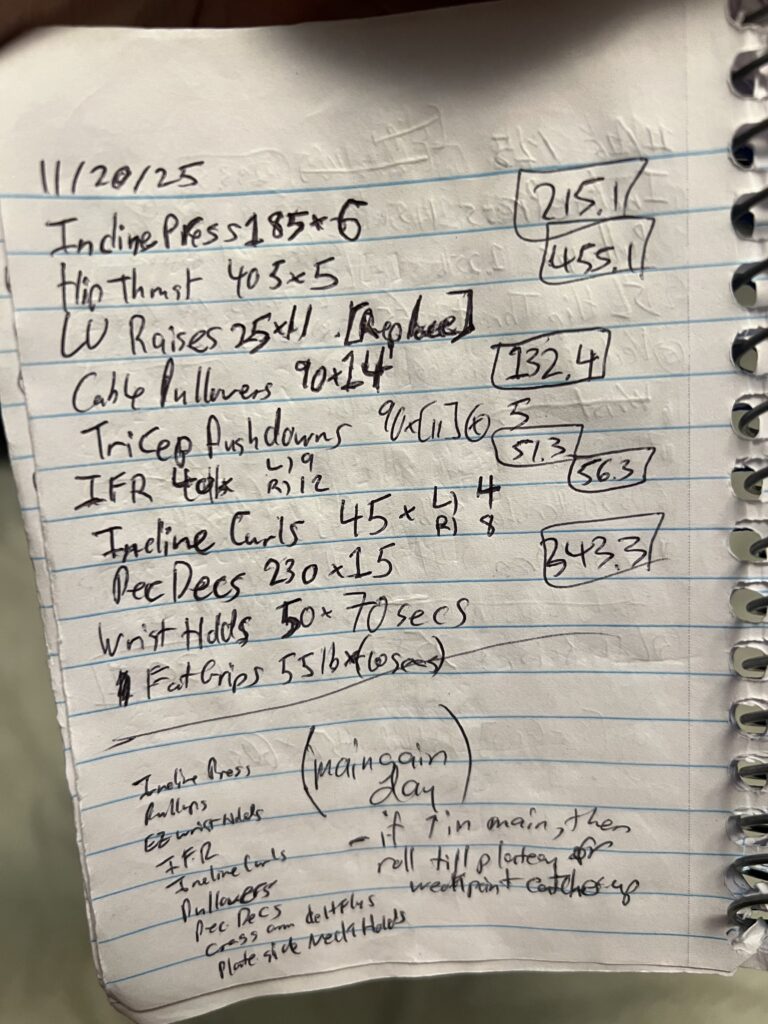 11/20/25
Incline Press 185 x 6 215.1
Hip Thrust 405 x 5 455.1
LU Raises 25 x 11 [Replace]
Cable Pullovers 90 x 14 132.4
Tricep Pushdowns 90 x [11] 5
IFR L) 9 R) 12 51.3
Incline Curls 45 x L) 4 R) 8 56.3
Pec Decs 230 x 15 343.3
Wrist Holds 50 x 70 secs
Fat Grips 55 lb x (60 secs)
(maingain day)
Incline Press
Pullups
EZ Wrist Holds
IFR
Incline Curls
Pullovers
Pec Decs
Cross arm delt flys
Plate side Neck Holds
- if ↑ in main, then
roll till plateau or
weakpoint catches up